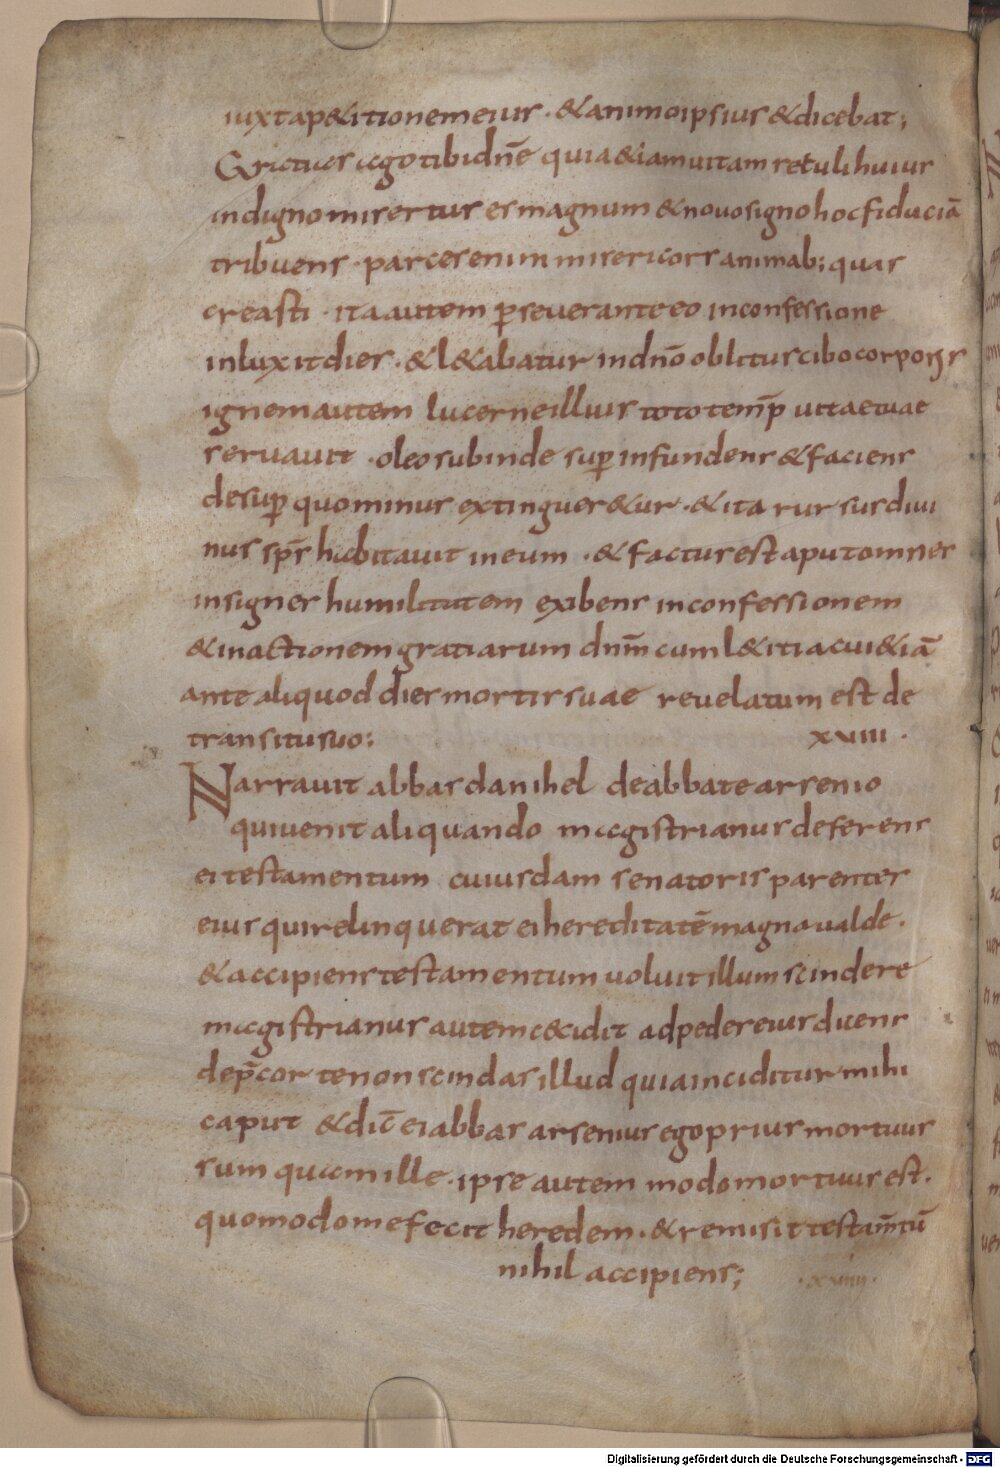 iuxta p&itionem eius · & animo ipsius & dicebat;
Gratias ago tibi dn̄e quia & iam uitam retuli huius
indigno misertus es magnum & nouo signo hoc fiduciā
tribuens · parces enim misericors animab; quas
creasti · ita autem ꝑseuerante eo in confessione
inluxit dies · & l&abatur in dn̄o oblitus cibo corporis
ignem autem lucerne illius toto temp̄ uitae tuae
seruauit · oleo subinde suꝑ infundens & faciens
desuꝑ quominus extinguer&ur · & ita rursus diui
nus sp̄s habitauit in eum · & factus est aput omnes
insignes humilitatem exibens in confessionem
& in actionem gratiarum dn̄m cum l&itia cui &iā
ante aliquod dies mortis suae reuelatum est de
transitu suo:
xuiii ·
Narrauit abbas danihel de abbate arsenio
qui uenit aliquando magistrianus deferens
ei testamentum cuiusdam senatoris parentes
eius qui relinquerat ei hereditatē magna ualde ·
& accipiens testamentum uoluit illum scindere
magistrianus autem c&idit ad pedes eius dicens
dep̄cor te non scindas illud quia inciditur mihi
caput & dic̄ ei abbas arsenius ego prius mortuus
sum quam ille · ipse autem modo mortuus est ·
quomodo me fecit heredem · & remisit testam̄tū
nihil accipiens;
· xuiiii ·
Digitalisierung gefördert durch die Deutsche Forschungsgemeinschaft - DFG